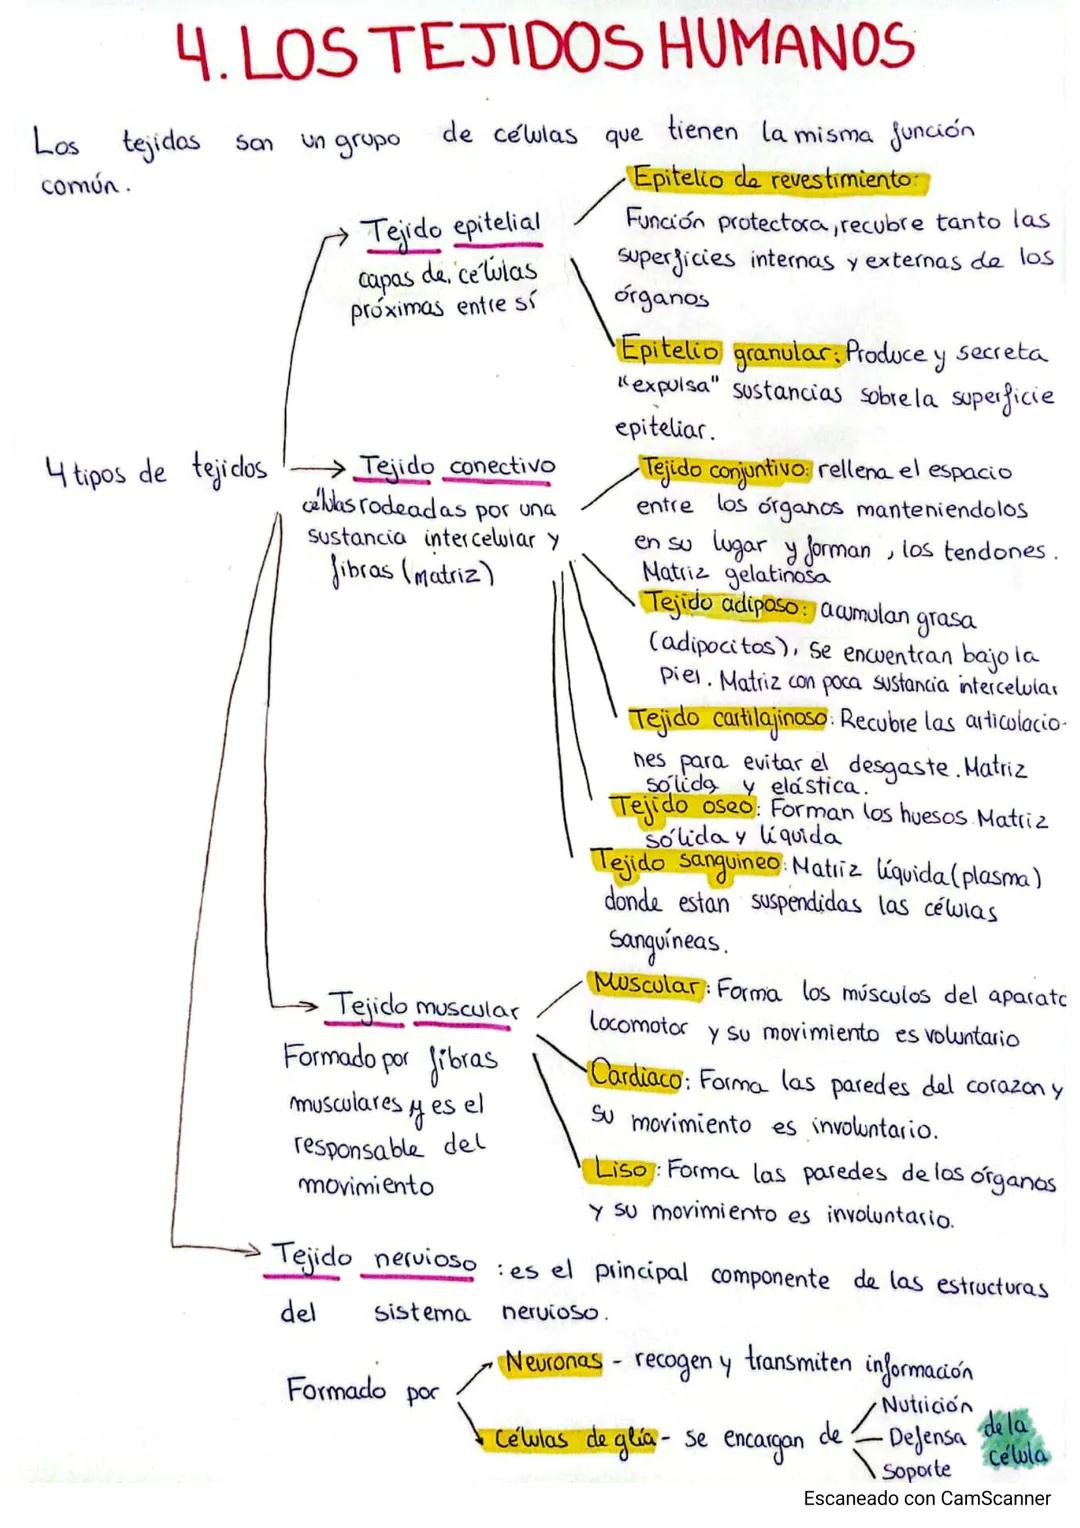 4. LOS TEJIDOS HUMANOS
Los tejidos son un grupo de células que tienen la misma función
común.
4 tipos de tejidos
Tejido epitelial
capas de células
próximas entre sí
Epitelio de revestimiento:
Función protectora, recubre tanto las
superficies internas y externas de los
órganos
Epitelio granular: Produce y secreta
"expulsa" sustancias sobre la superficie
epiteliar.
Tejido conectivo
células rodeadas por una
sustancia intercelular y
fibras (matriz)
Tejido conjuntivo: rellena el espacio
entre los órganos manteniendolos
en su lugar y forman, los tendones.
Matriz gelatinosa
Tejido adiposo: acumulan grasa
(adipocitos), se encuentran bajo la
piel. Matriz con poca sustancia intercelular
Tejido cartilajinoso: Recubre las articulacio-
nes para evitar el desgaste. Matriz
sólida y elástica.
Tejido oseo: Forman los huesos. Matriz
sólida y líquida
Tejido sanguineo: Matriz líquida (plasma)
donde estan suspendidas las células
sanguíneas.
Tejido muscular
Formado por fibras
musculares y es el
responsable del
movimiento
Muscular: Forma los músculos del aparato
locomotor y su movimiento es voluntario
Cardiaco: Forma las paredes del corazon y
su movimiento es involuntario.
Liso: Forma las paredes de los órganos
y su movimiento es involuntario.
Tejido nervioso: es el principal componente de las estructuras
del sistema nervioso.
Formado por
Neuronas - recogen y transmiten información
Células de glía - se encargan de
Nutrición
Defensa
Soporte
de la
célula
Escaneado con CamScanner